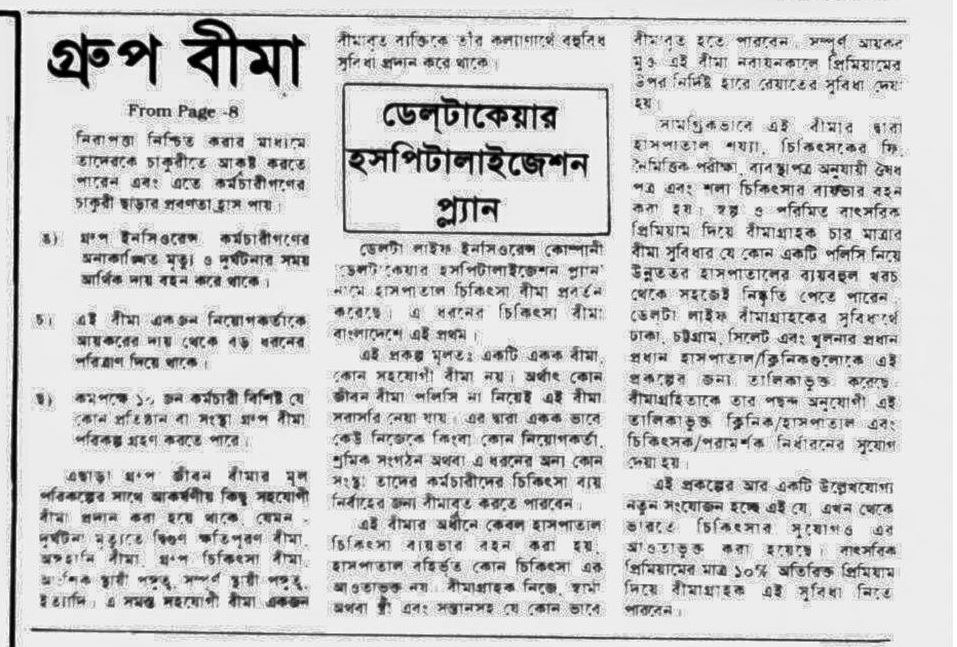 গ্রুপ বীমা
From Page -8
নিরাপত্তা নিশ্চিত করার মাধ্যমে
তাদেরকে চাকুরীতে আকৃষ্ট করতে
পারেন এবং এতে কর্মচারীগণের
চাকুরী ছাড়ার প্রবণতা হ্রাস পায়।
ঙ) গ্রুপ ইনসিওরেন্স কর্মচারীগণের
অনাকাঙ্ক্ষিত মৃত্যু ও দুর্ঘটনার সময়
আর্থিক দায় বহন করে থাকে।
চ) এই বীমা একজন নিয়োগকর্তাকে
আয়করের দায় থেকে বড় ধরনের
পরিত্রাণ দিয়ে থাকে।
ছ) কমপক্ষে ১০ জন কর্মচারী বিশিষ্ট যে
কোন প্রতিষ্ঠান বা সংস্থা গ্রুপ বীমা
পরিকল্প গ্রহণ করতে পারে।
এছাড়া গ্রুপ জীবন বীমার মূল
পরিকল্পের সাথে আকর্ষণীয় কিছু সহযোগী
বীমা প্রদান করা হয়ে থাকে, যেমন -
দুর্ঘটনা মৃত্যুতে দ্বিগুণ ক্ষতিপূরণ বীমা,
অঙ্গহানি বীমা, গ্রুপ চিকিৎসা বীমা,
আংশিক স্থায়ী পঙ্গুত্ব, সম্পূর্ণ স্থায়ী পঙ্গুত্ব,
ইত্যাদি। এ সমস্ত সহযোগী বীমা একজন
বীমাবৃত ব্যক্তিকে তাঁর কল্যাণার্থে বহুবিধ
সুবিধা প্রদান করে থাকে।
ডেল্‌টাকেয়ার
হসপিটালাইজেশন
প্ল্যান
ডেলটা লাইফ ইনসিওরেন্স কোম্পানী
'ডেলটাকেয়ার হসপিটালাইজেশন প্ল্যান'
নামে হাসপাতাল চিকিৎসা বীমা প্রবর্তন
করেছে। এ ধরনের চিকিৎসা বীমা
বাংলাদেশে এই প্রথম।
এই প্রকল্প মূলতঃ একটি একক বীমা,
কোন সহযোগী বীমা নয়। অর্থাৎ কোন
জীবন বীমা পলিসি না নিয়েই এই বীমা
সরাসরি নেয়া যায়। এর দ্বারা একক ভাবে
কেউ নিজেকে কিংবা কোন নিয়োগকর্তা,
শ্রমিক সংগঠন অথবা এ ধরনের অন্য কোন
সংস্থা তাদের কর্মচারীদের চিকিৎসা ব্যয়
নির্বাহের জন্য বীমাবৃত করতে পারবেন।
এই বীমার অধীনে কেবল হাসপাতাল
চিকিৎসা ব্যয়ভার বহন করা হয়,
হাসপাতাল বহির্ভূত কোন চিকিৎসা এর
আওতাভুক্ত নয়। বীমাগ্রাহক নিজে, স্বামী
অথবা স্ত্রী এবং সন্তানসহ যে কোন ভাবে
বীমাবৃত হতে পারবেন। সম্পূর্ণ আয়কর
মুক্ত এই বীমা নবায়নকালে প্রিমিয়ামের
উপর নির্দিষ্ট হারে রেয়াতের সুবিধা দেয়া
হয়।
সামগ্রিকভাবে এই বীমার দ্বারা
হাসপাতাল শয্যা, চিকিৎসকের ফি,
নৈমিত্তিক পরীক্ষা, ব্যবস্থাপত্র অনুযায়ী ঔষধ
পত্র এবং শল্য চিকিৎসার ব্যয়ভার বহন
করা হয়। স্বল্প ও পরিমিত বাৎসরিক
প্রিমিয়াম দিয়ে বীমাগ্রাহক চার মাত্রার
বীমা সুবিধার যে কোন একটি পলিসি নিয়ে
উন্নততর হাসপাতালের ব্যয়বহুল খরচ
থেকে সহজেই নিষ্কৃতি পেতে পারেন।
ডেলটা লাইফ বীমাগ্রাহকের সুবিধার্থে
ঢাকা, চট্টগ্রাম, সিলেট এবং খুলনার প্রধান
প্রধান হাসপাতাল/ক্লিনিকগুলোকে এই
প্রকল্পের জন্য তালিকাভুক্ত করেছে।
বীমাগ্রহিতাকে তার পছন্দ অনুযায়ী এই
তালিকাভুক্ত ক্লিনিক/হাসপাতাল এবং
চিকিৎসক/পরামর্শক নির্ধারনের সুযোগ
দেয়া হয়।
এই প্রকল্পের আর একটি উল্লেখযোগ্য
নতুন সংযোজন হচ্ছে এই যে, এখন থেকে
ভারতে চিকিৎসার সুযোগও এর
আওতাভুক্ত করা হয়েছে। বাৎসরিক
প্রিমিয়ামের মাত্র ১০% অতিরিক্ত প্রিমিয়াম
দিয়ে বীমাগ্রাহক এই সুবিধা নিতে
পারবেন।